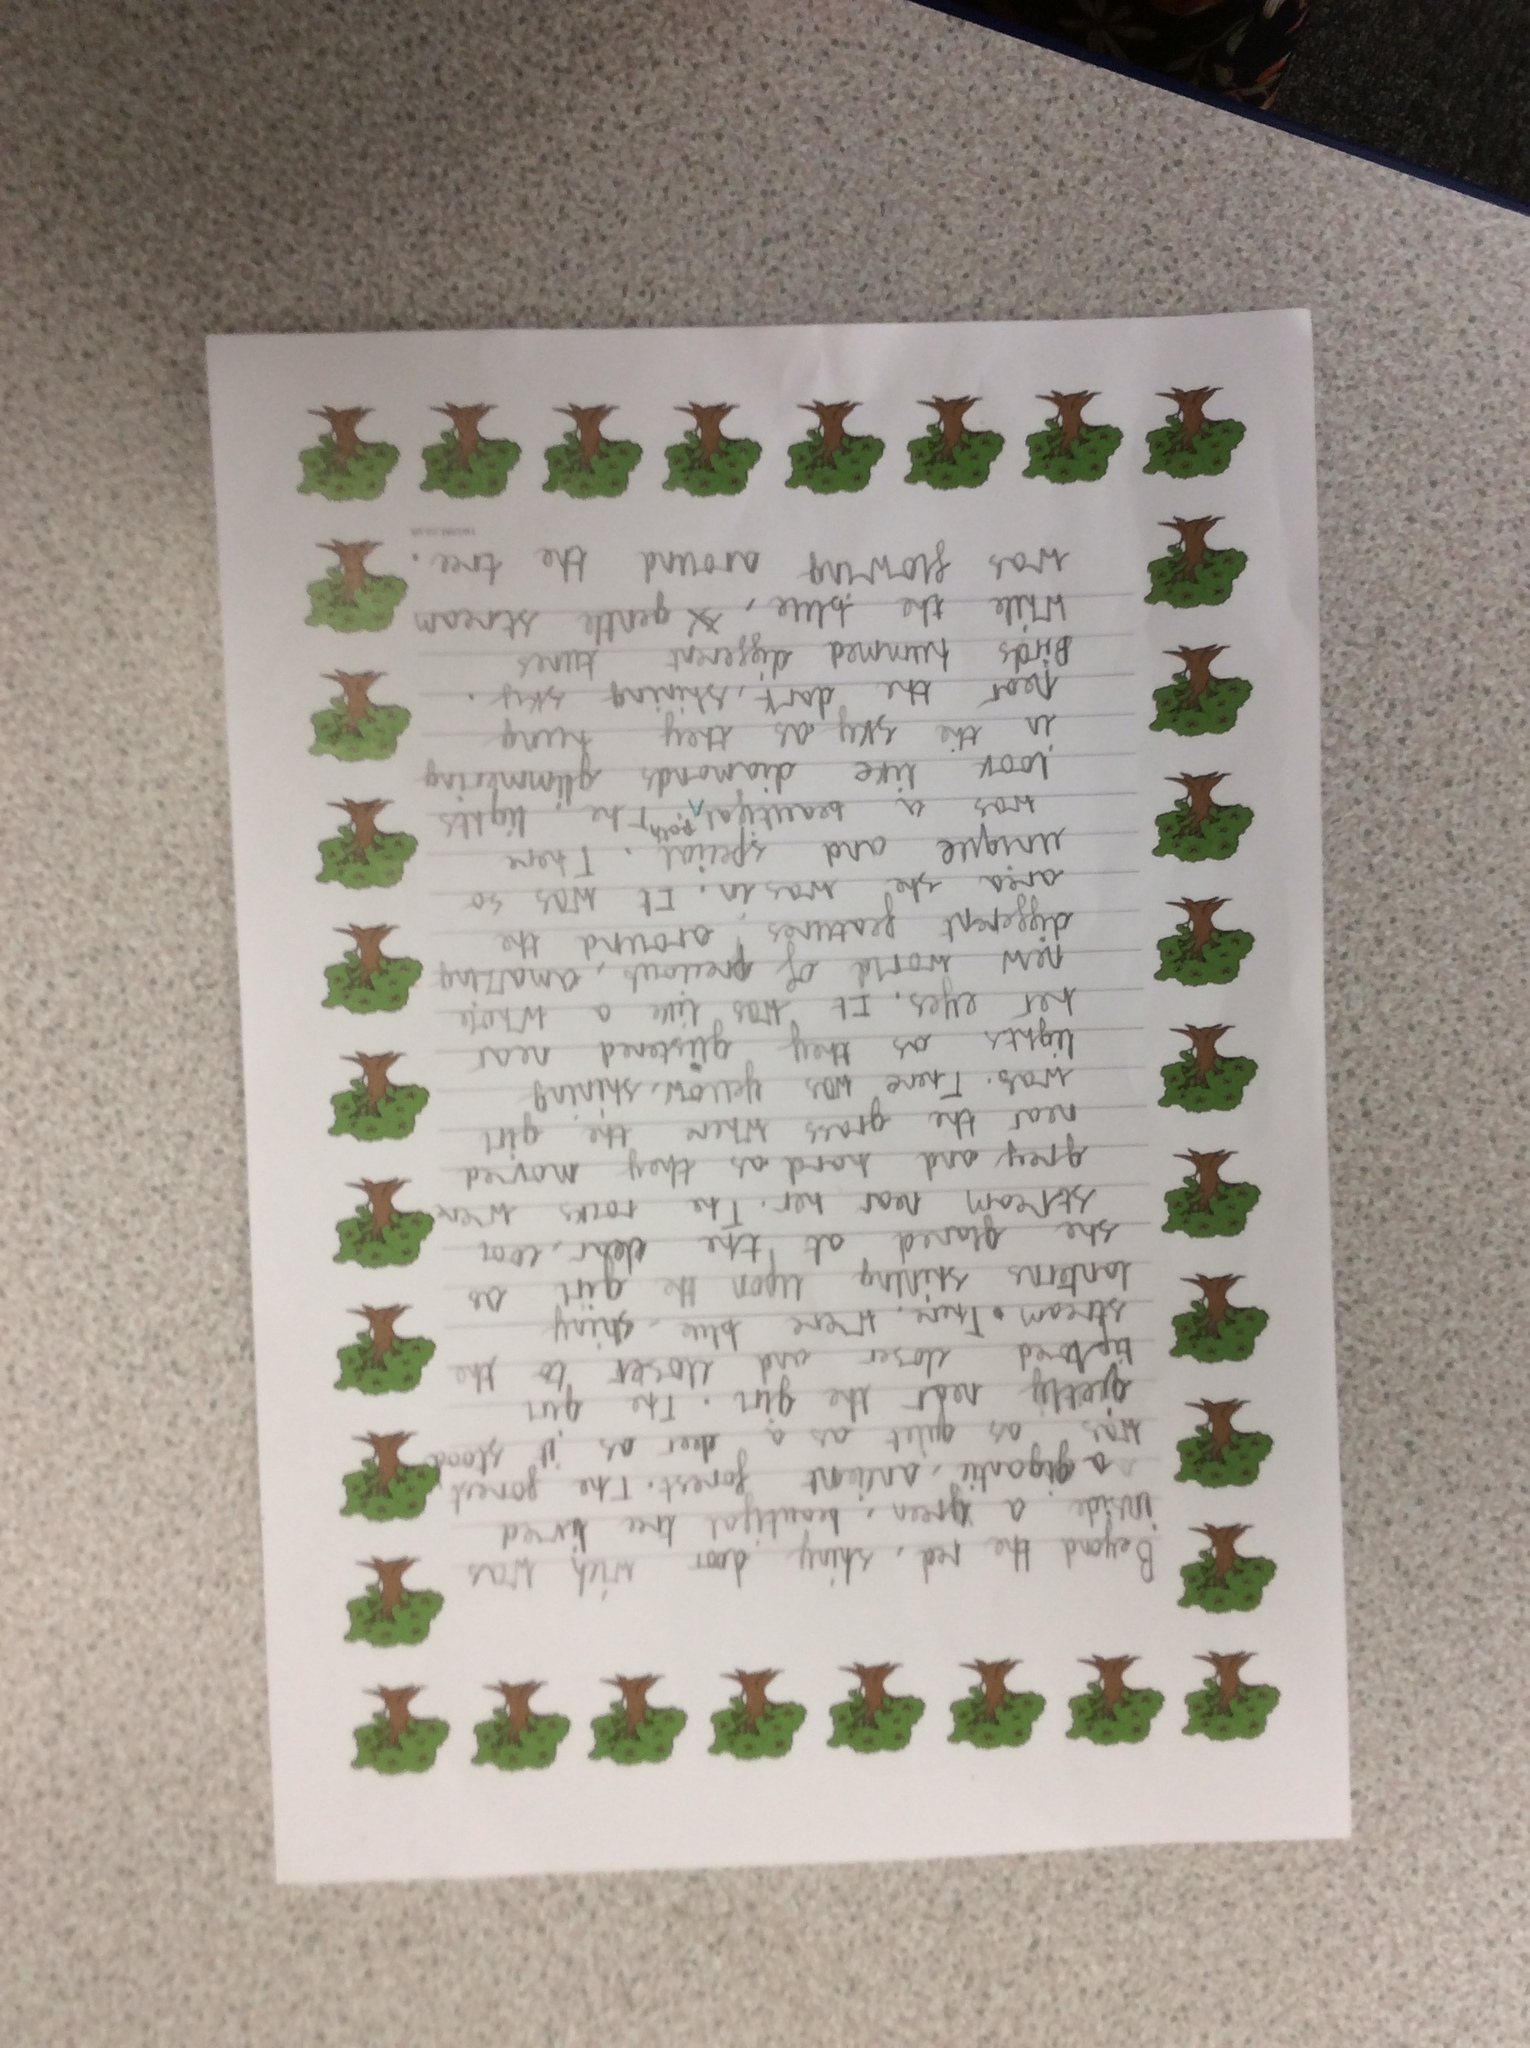 Beyond the red, shiny door wich was
inside, a green, beautiful tree lived
a gigantic, ancient forest. The forest,
was as quiet as a deer as it stood
quietly near the girl. The girl
tiptoed closer and closer to the
stream. There, were blue, shiny
lanterns shining upon the girl as
she glared at the clear, cool
stream near her. The rocks were
grey and hard as they moved
near the grass where the girl
was. There was yellow, shining
lights as they glistened near
her eyes. It was like a whole
new world of precious, amazing
different features, around the
area she was in. It was so
unique and special. There
was a beautiful path, The lights
look like diamonds glimmering
in the sky as they hung
near the dark, shining sky.
Birds hummed different tunes
while the blue, gentle stream
was flowing around the tree.